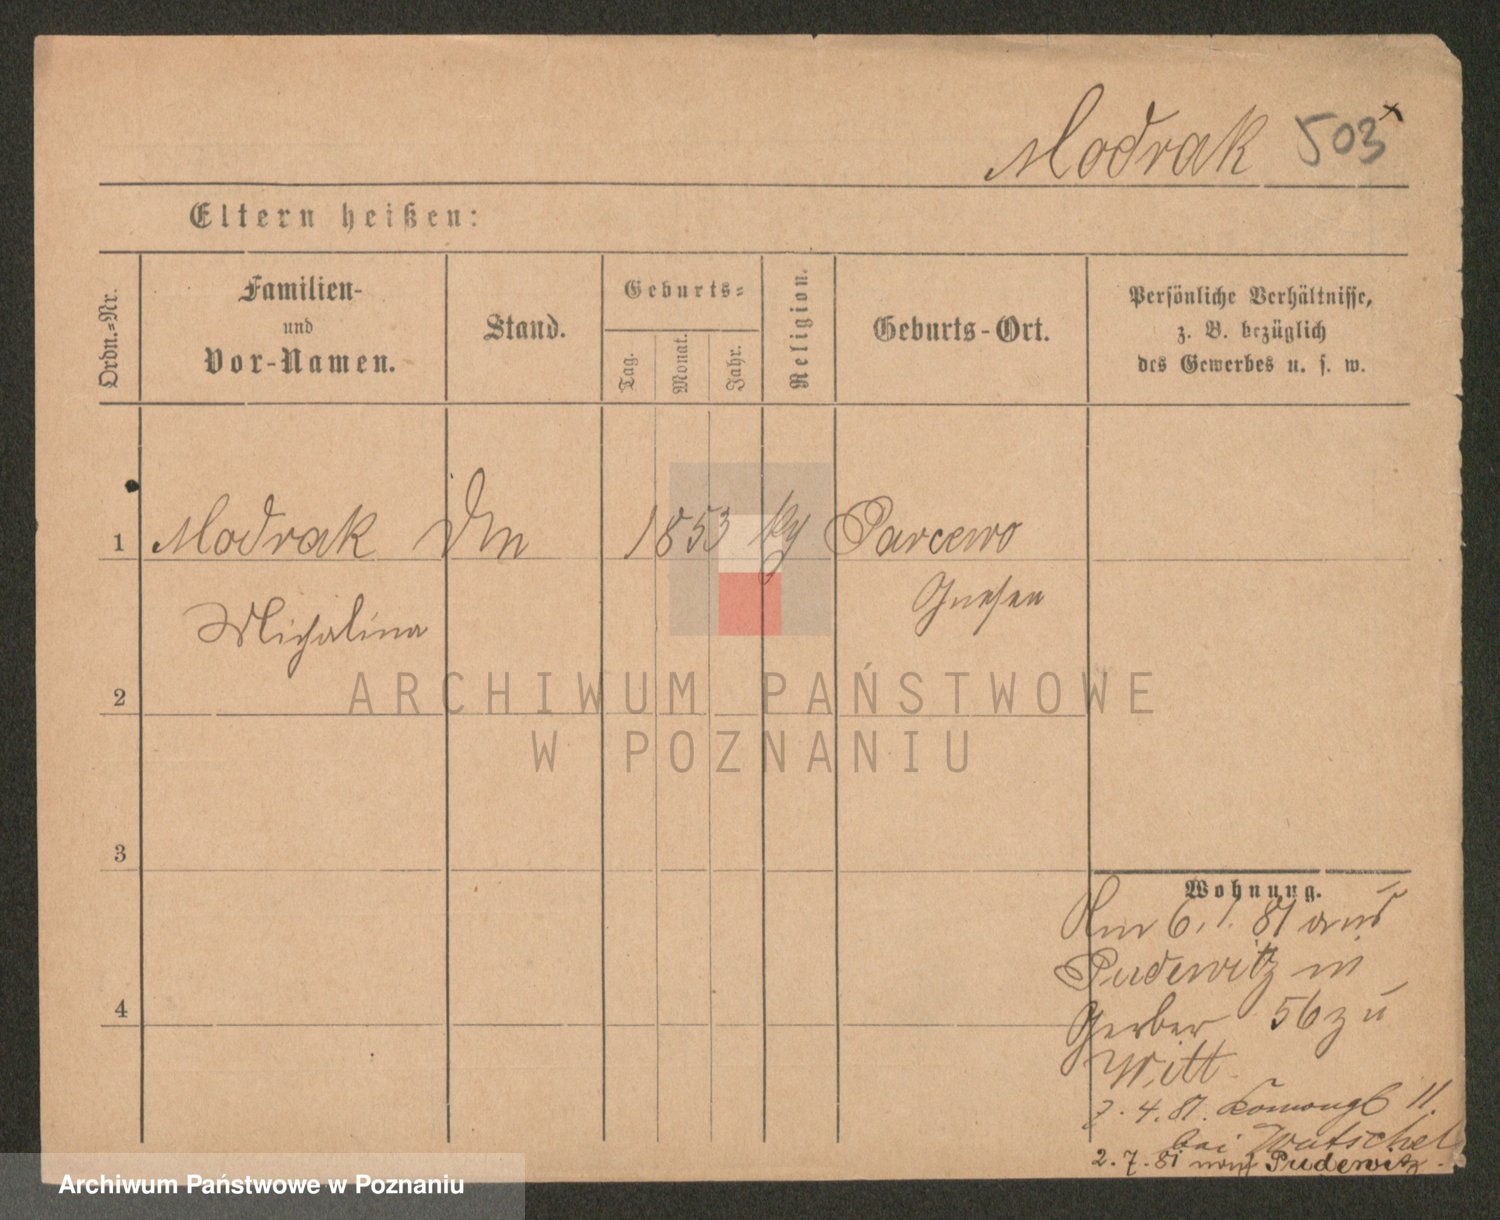 Modrak 503 x
Eltern heißen:
Ordn.-Nr.
Familien-
und
Vor-Namen.
Stand.
Geburts-
Tag.
Monat.
Jahr.
Religion.
Geburts-Ort.
Persönliche Verhältnisse,
z. B. bezüglich
des Gewerbes u. s. w.
1 Modrak 1853 Parcewo
Michalina Gnesen
2
3
4
ARCHIWUM PAŃSTWOWE
W POZNANIU
Wohnung.
6. 1. 81 aus
Pudewitz in
Gerber 56 zu
Witt
4. 81. 11.
bei Wutschel
2. 7. 81 nach Pudewitz.
Archiwum Państwowe w Poznaniu